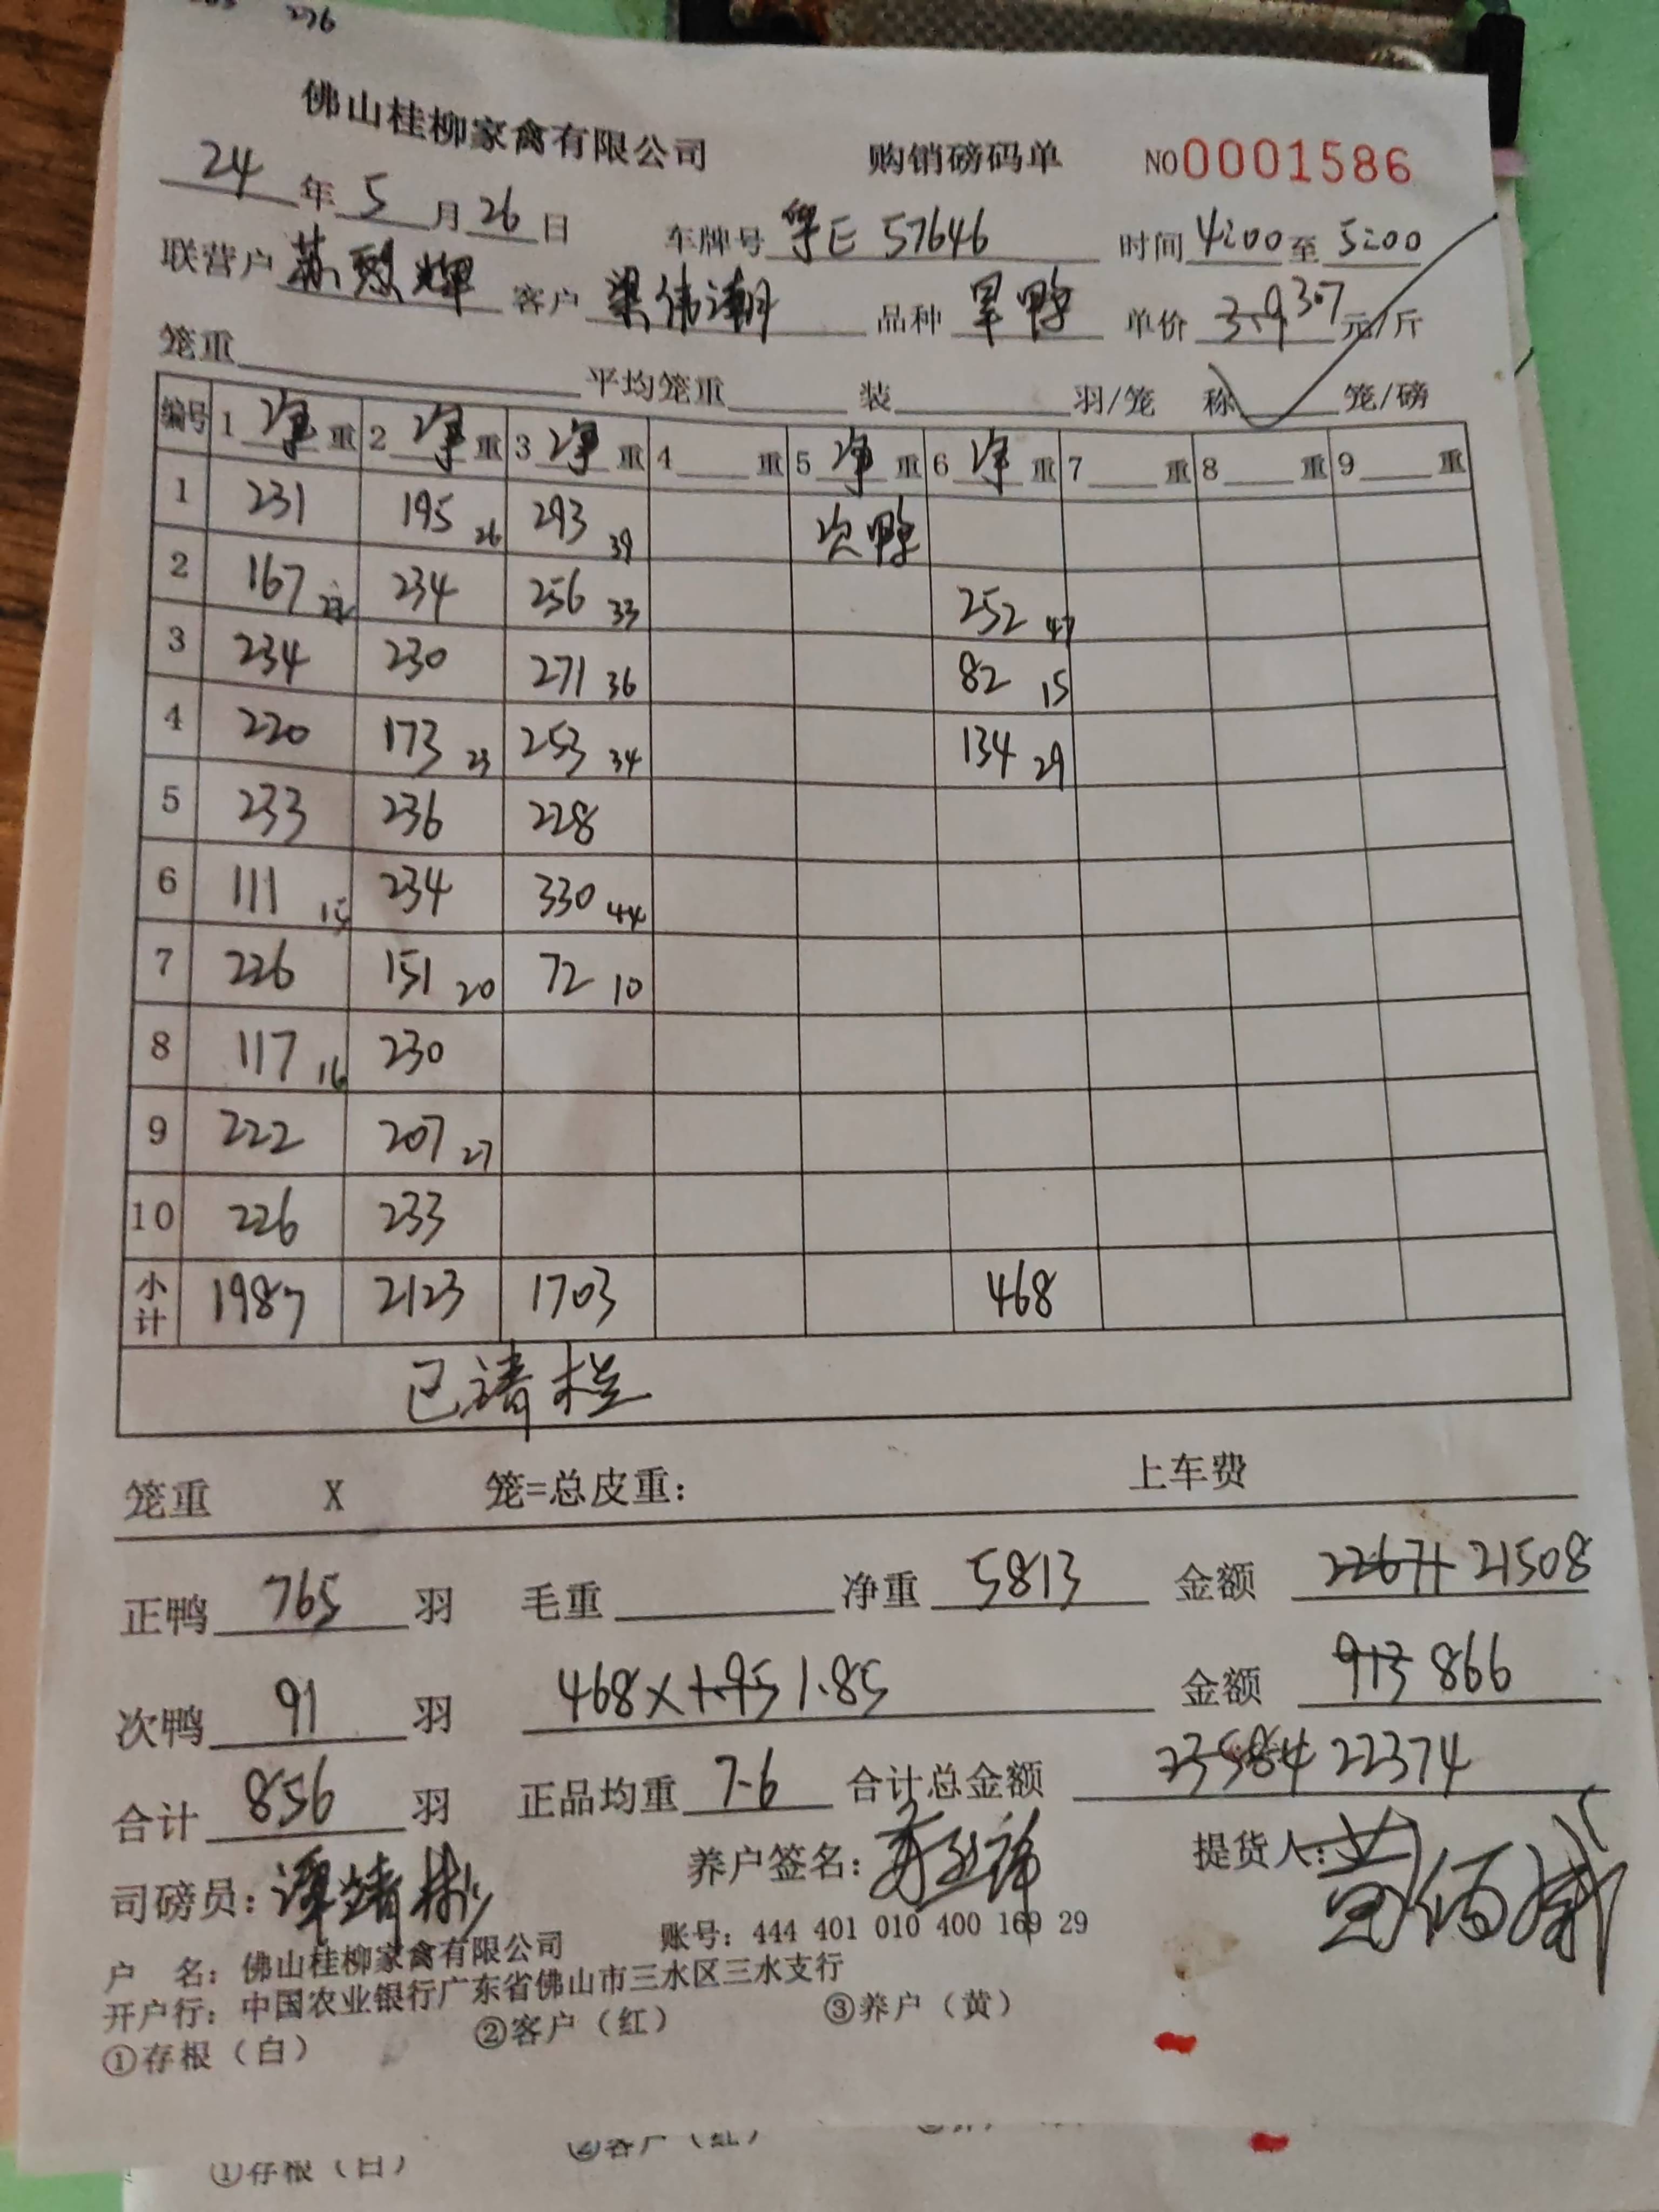 276
佛山桂柳家禽有限公司 购销磅码单 NO 0001586
24年5月26日 车牌号 粤E 57646 时间 4:00 至 5:00
联营户 苏烈辉 客户 梁伟潮 品种 旱鸭 单价 3.9 3.7 元/斤
笼重 平均笼重 装 羽/笼 称 笼/磅
编号 1 净 重 2 净 重 3 净 重 4 重 5 净 重 6 净 重 7 重 8 重 9 重
1 231 195 26 293 39 次鸭
2 167 22 234 256 33 252 47
3 234 230 271 36 82 15
4 220 173 23 253 34 134 29
5 233 236 228
6 111 15 234 330 44
7 226 151 20 72 10
8 117 16 230
9 222 207 27
10 226 233
小计 1987 2123 1703 468
已请栏
笼重 X 笼=总皮重: 上车费
正鸭 765 羽 毛重 净重 5813 金额 22671 21508
次鸭 91 羽 468×1.95 1.85 金额 913 866
合计 856 羽 正品均重 7.6 合计总金额 23584 22374
司磅员: 养户签名: 提货人:
户 名: 佛山桂柳家禽有限公司 账号: 444 401 010 400 169 29
开户行: 中国农业银行广东省佛山市三水区三水支行
①存根（白） ②客户（红） ③养户（黄）
①存根（白） ②客户（红）